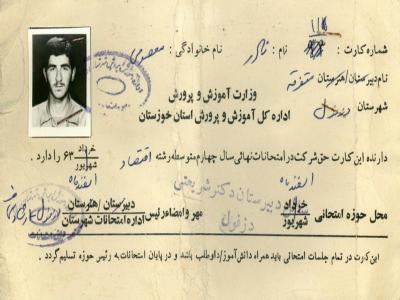 شماره کارت: نام: شاکر نام خانوادگی:
نام دبیرستان/هنرستان متفرقه
شهرستان دزفول
وزارت آموزش و پرورش
اداره کل آموزش و پرورش استان خوزستان
دارنده این کارت حق شرکت در امتحانات نهائی سال چهارم متوسطه رشته اقتصاد خرداد شهریور ۶۲ را دارد.
اسفندماه
محل حوزه امتحانی خرداد شهریور دبیرستان دکتر شریعتی دزفول مهر و امضاء رئیس دبیرستان / هنرستان اداره امتحانات شهرستان
این کارت در تمام جلسات امتحانی باید همراه دانش‌آموز/داوطلب باشد و در پایان امتحانات به رئیس حوزه تسلیم گردد.